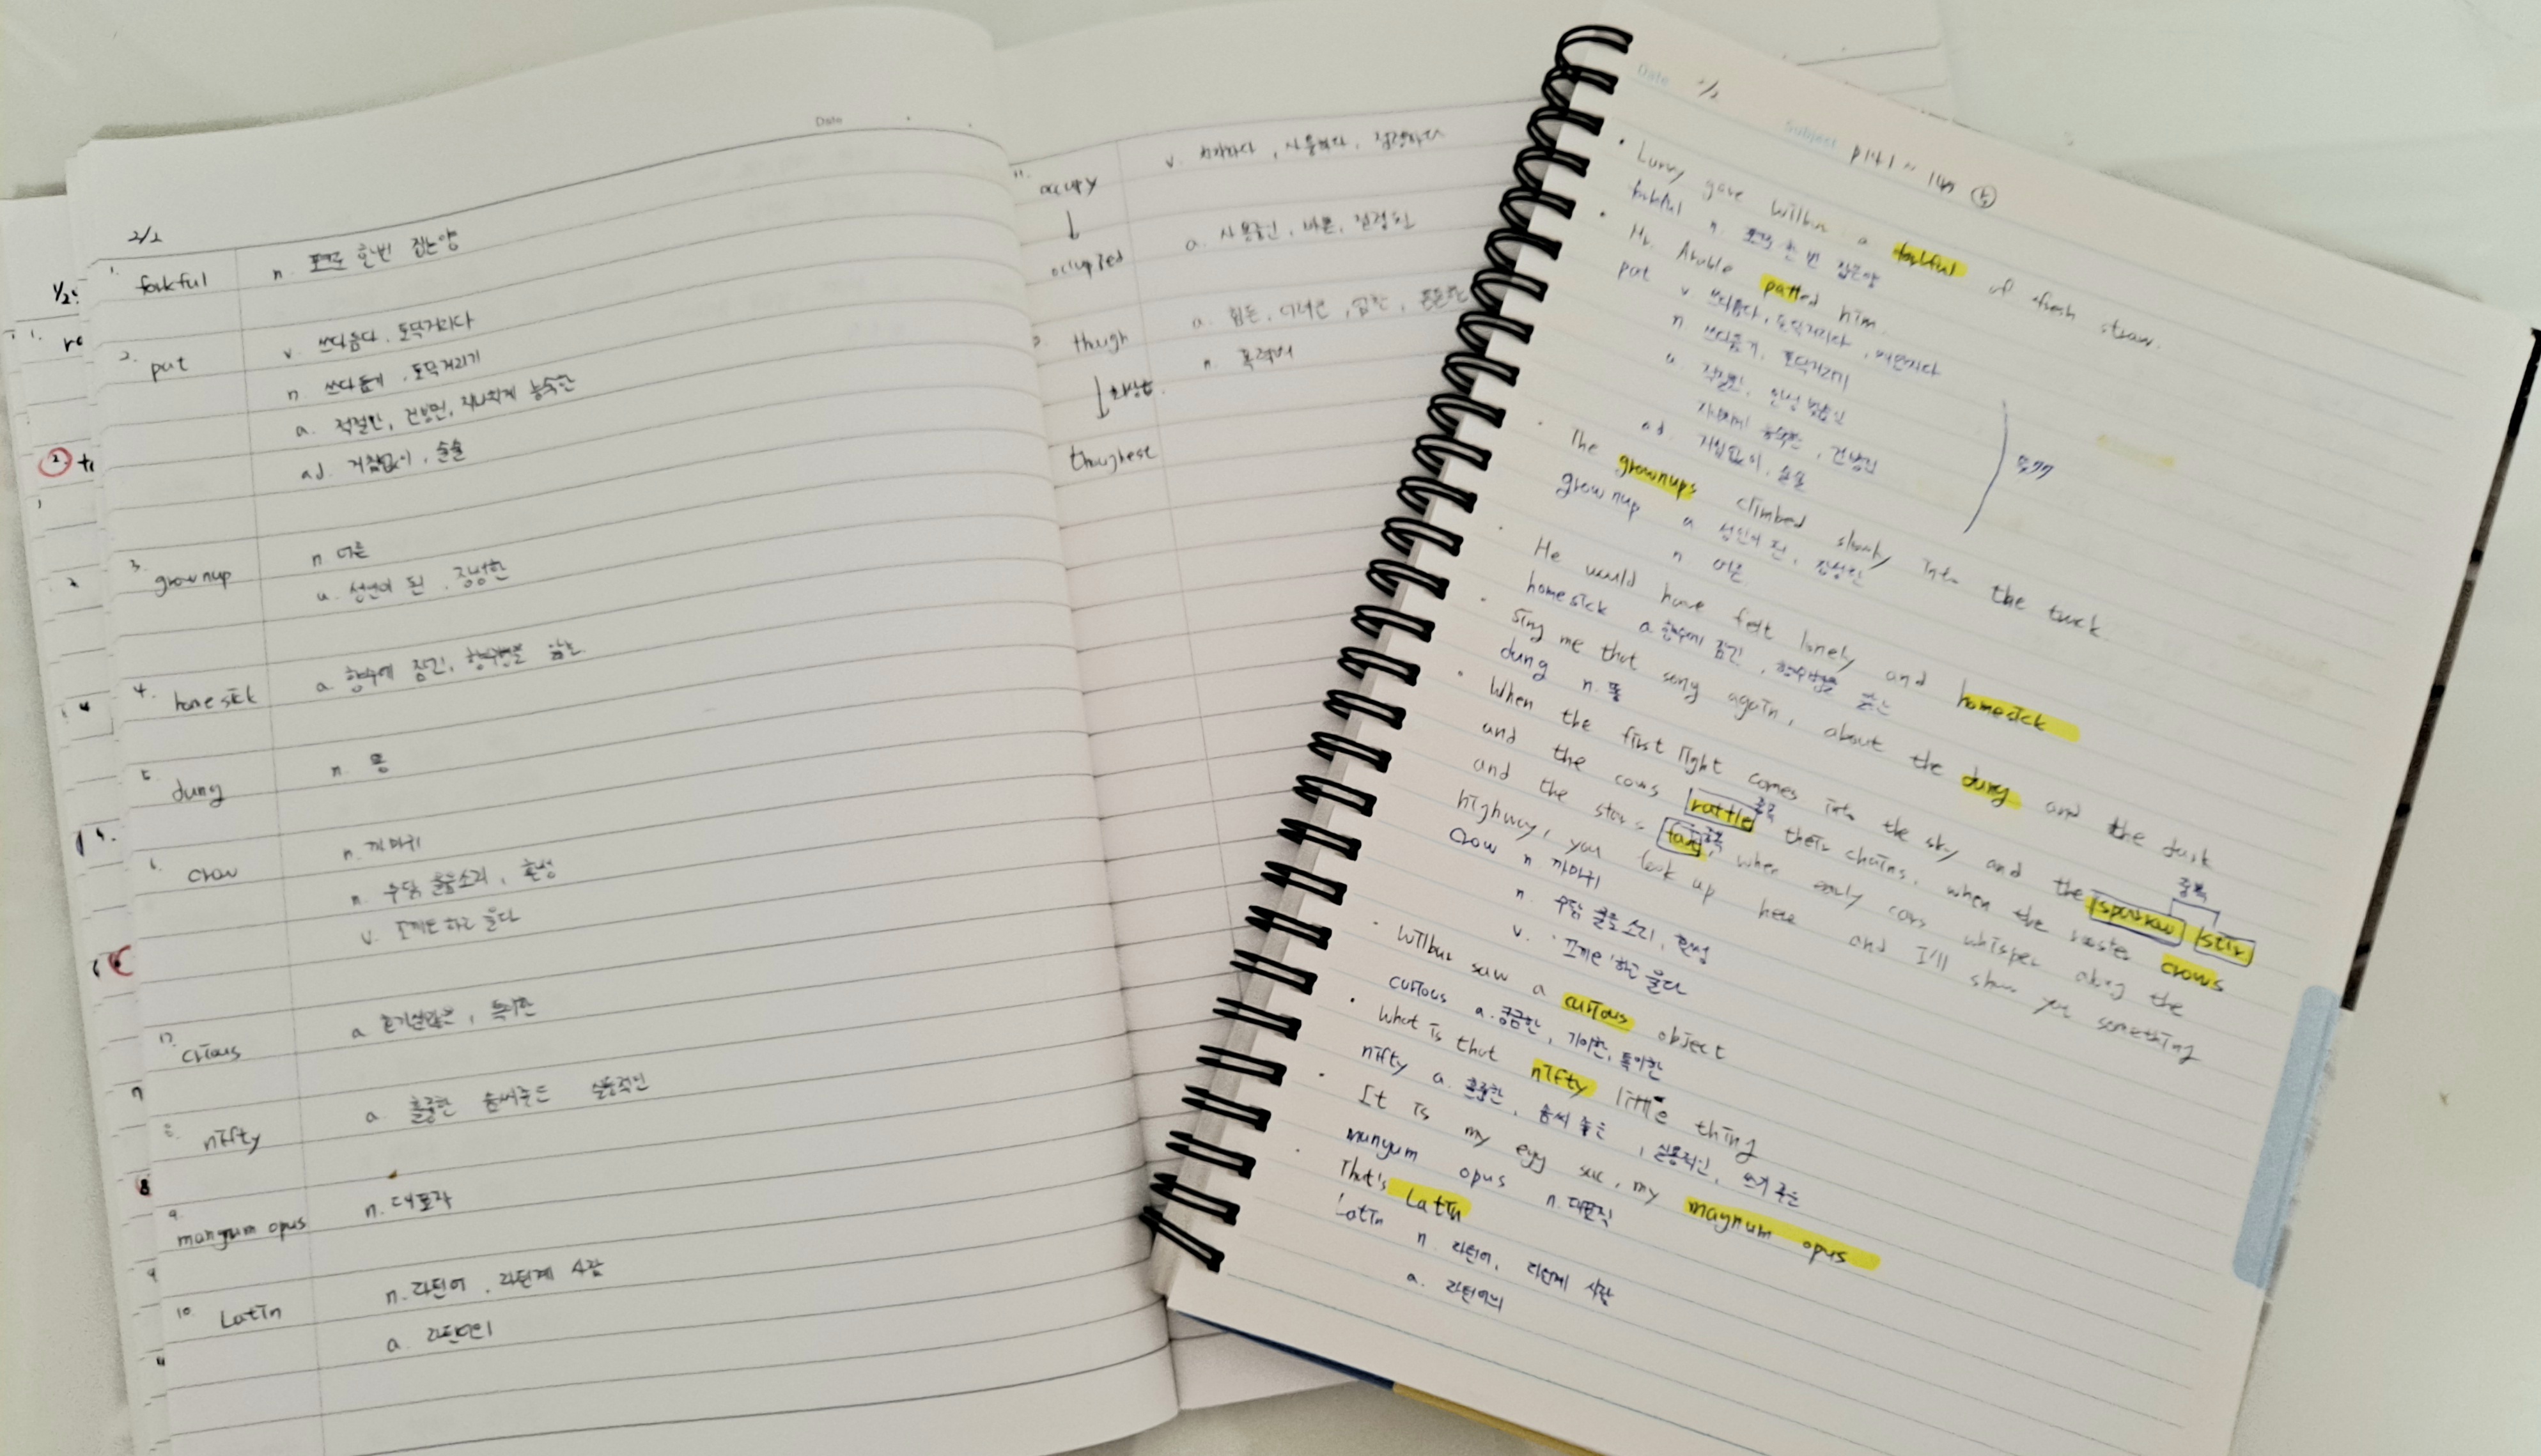 2/2
1. forkful n. 포크로 한번 집는양
2. pat v. 쓰다듬다, 토닥거리다
n 쓰다듬기, 토닥거리기
a. 적절한, 건방진, 지나치게 능숙한
ad. 거침없이, 술술
3. grownup n 어른
a. 성인이 된, 장성한
4. homesick a. 향수에 잠긴, 향수병을 앓는
5. dung n. 똥
6. crow n. 까마귀
n. 수탉 울음소리, 환성
v. 꼬끼오 하고 울다
crious a 호기심많은, 특이한
8. nifty a. 훌륭한 솜씨좋은 실용적인
9. mangnum opus n. 대표작
10. Latin n. 라틴어, 라틴계 사람
a. 라틴어의
Date
11. occupy v. 차지하다, 사용하다, 점령하다
↓
occupied a. 사용중인, 바쁜, 점령된
though a. 힘든,
n. 폭력배
↓ 최상급
thoughest
Date
Subject p141 ~ 149
• Lurvy gave Wilbur a forkful of fresh straw.
forkful n. 포크로 한 번 집는양
• Mr. Arable patted him.
pat v 쓰다듬다, 토닥거리다, 어루만지다
n 쓰다듬기, 토닥거리기
a. 적절한, 안성맞춤인
지나치게 능숙한, 건방진
ad. 거침없이, 술술
• The grownups climbed slowly into the truck
grownup a 성인이 된, 장성한
n 어른
• He would have felt lonely and homesick
homesick a 향수에 잠긴, 향수병을 앓는
• Sing me that song again, about the dung and the dusk
dung n. 똥
• When the first light comes into the sky and the sparrow stir 중복
and the cows rattle 중복 their chains, when the rooster crows
and the stars fade 중복, when early cars whisper along the
highway, you look up here and I'll show you something
crow n 까마귀
n. 수탉 울음소리, 환성
v. '꼬끼오'하고 울다
• Wilbur saw a curious object
curious a. 궁금한, 기이한, 특이한
• What is that nifty little thing
nifty a. 훌륭한, 솜씨 좋은, 실용적인, 쓰기 좋은
• It is my egg sac, my magnum opus
mangum opus n. 대표작
• That's Latin
Latin n. 라틴어, 라틴계 사람
a. 라틴어의